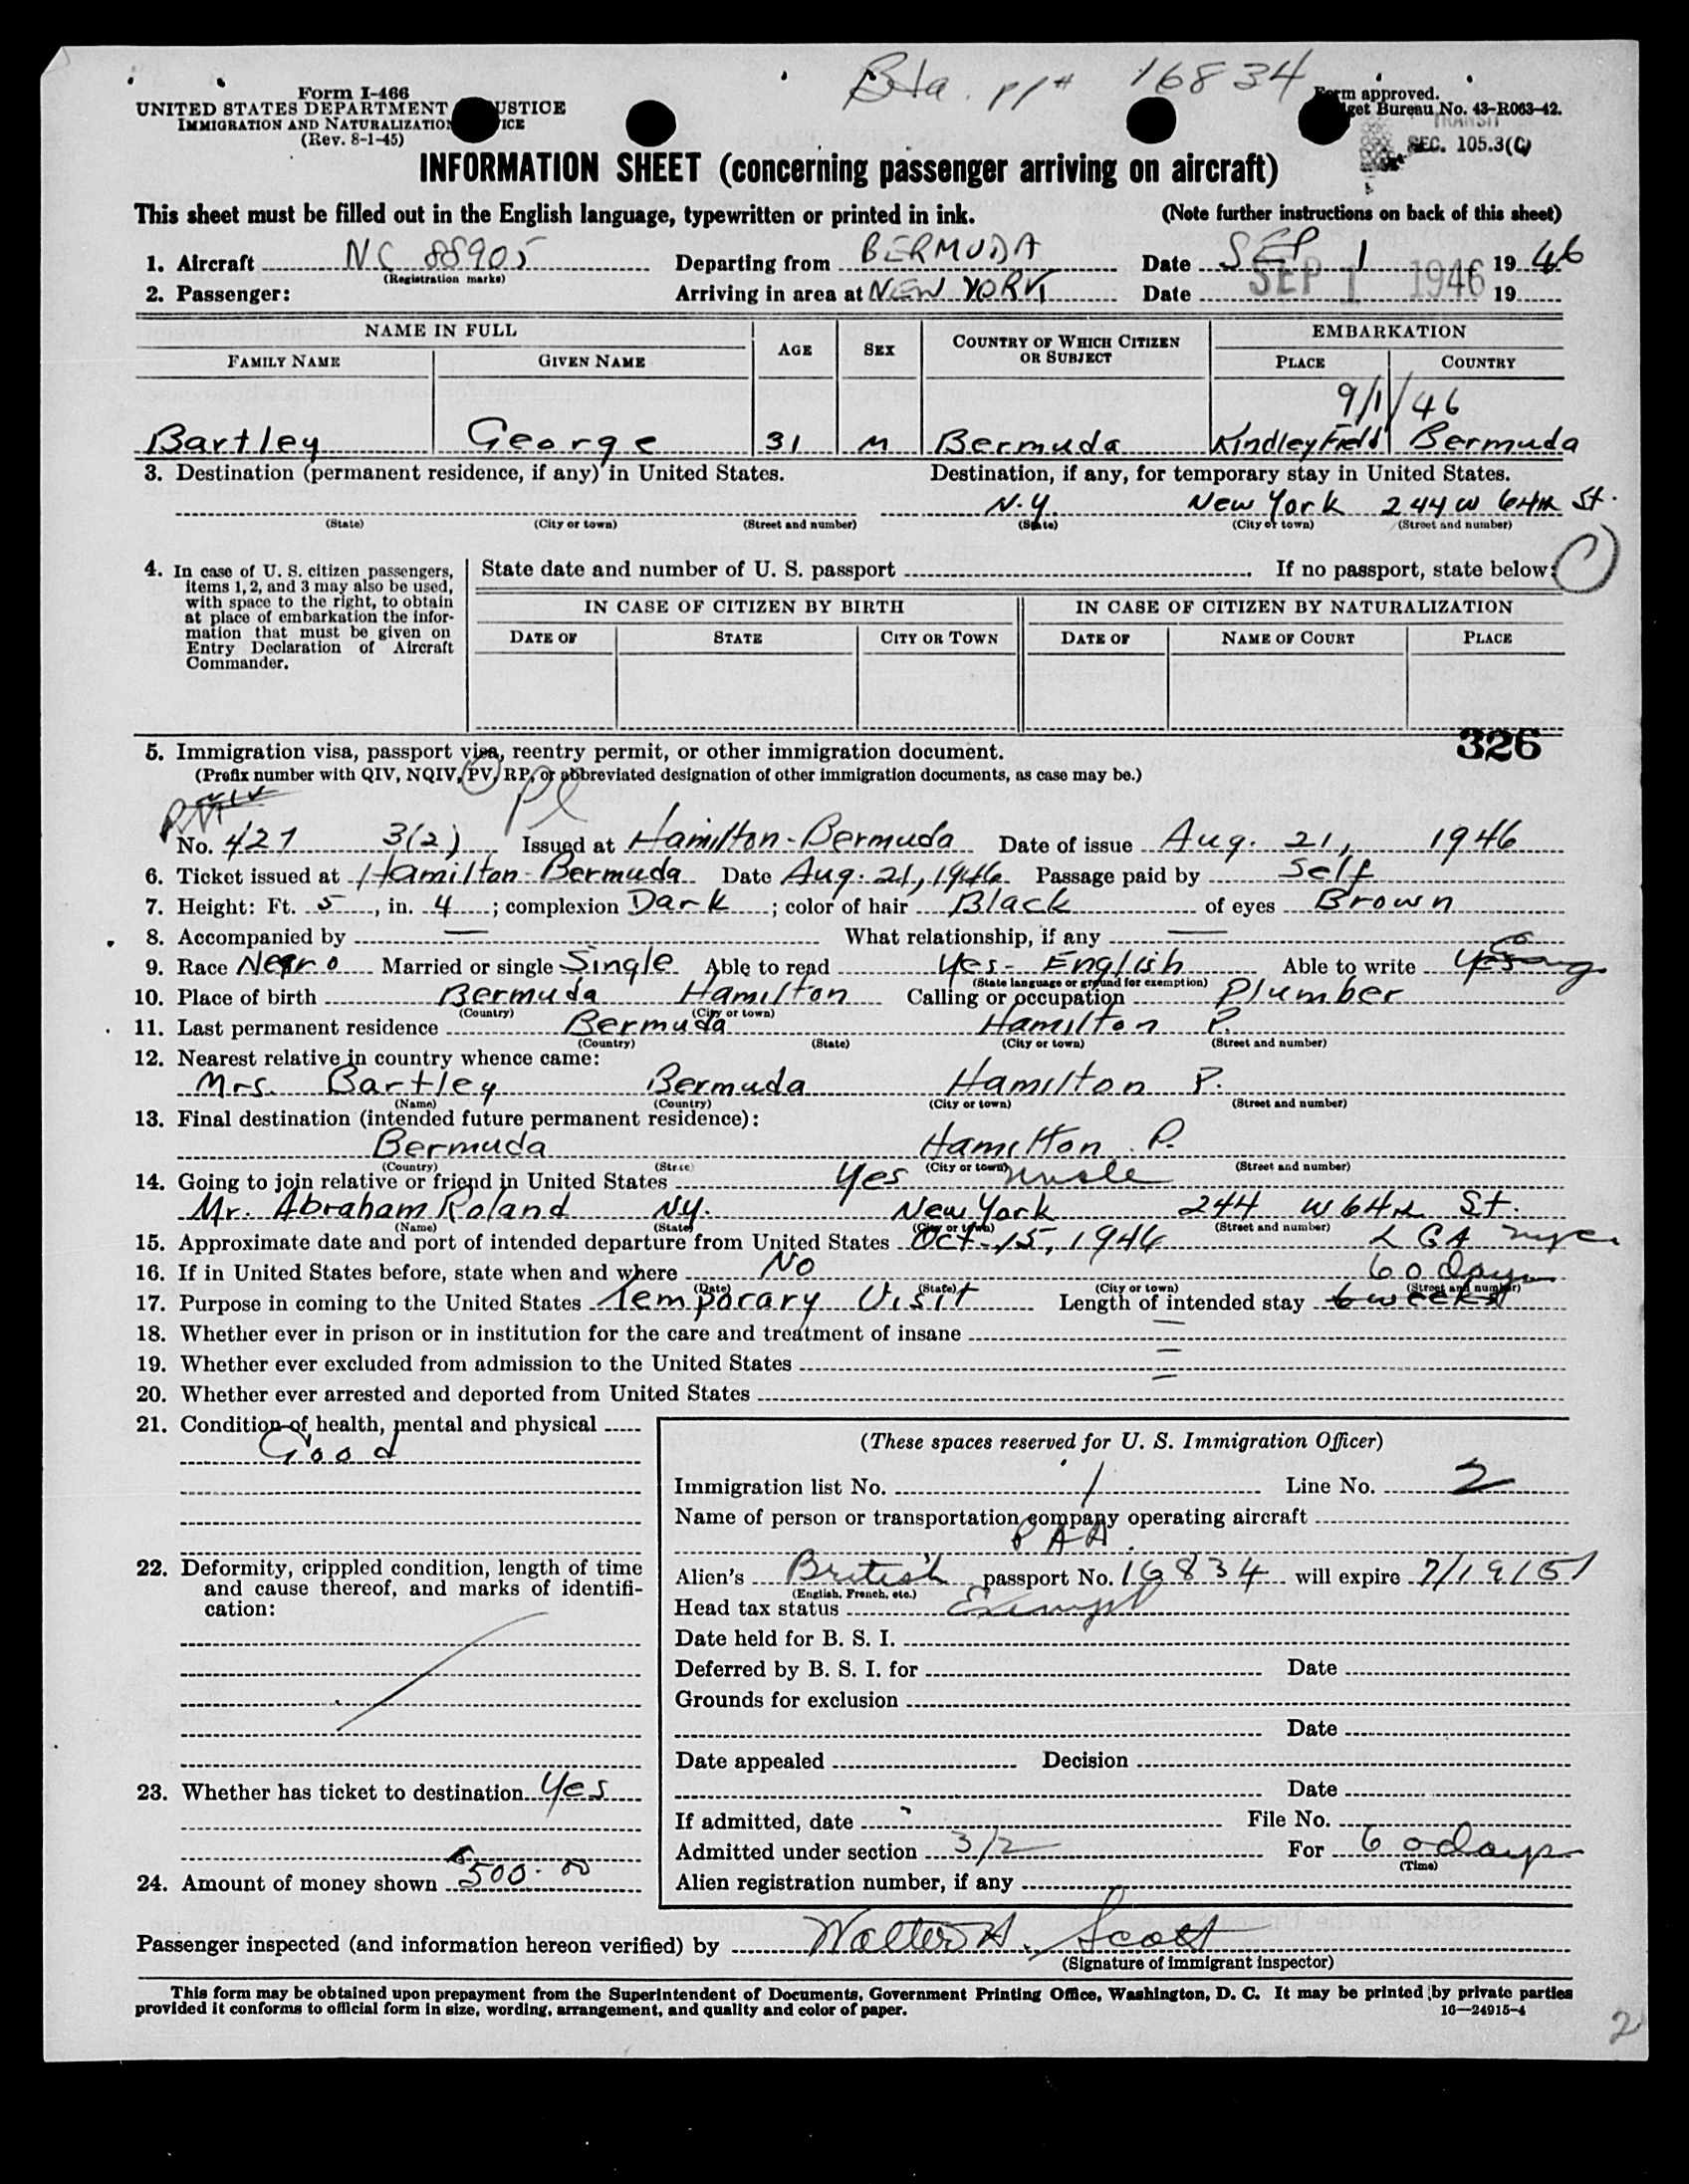 Bda. ppt 16834
Form I-466
UNITED STATES DEPARTMENT USTICE
IMMIGRATION AND NATURALIZATION ICE
(Rev. 8-1-45)
Form approved.
get Bureau No. 43-R063-42.
TRANSIT
SEC. 105.3(C)
INFORMATION SHEET (concerning passenger arriving on aircraft)
This sheet must be filled out in the English language, typewritten or printed in ink. (Note further instructions on back of this sheet)
1. Aircraft NC 88905 Departing from BERMUDA Date SEP 1 1946
(Registration marks)
2. Passenger: Arriving in area at NEW YORK Date SEP 1 1946 19
NAME IN FULL AGE SEX COUNTRY OF WHICH CITIZEN OR SUBJECT EMBARKATION
FAMILY NAME GIVEN NAME PLACE COUNTRY
9/1/46
Bartley George 31 M Bermuda Kindley Field Bermuda
3. Destination (permanent residence, if any) in United States. Destination, if any, for temporary stay in United States.
N.Y. New York 244 W 64th St.
(State) (City or town) (Street and number) (State) (City or town) (Street and number)
4. In case of U. S. citizen passengers, items 1, 2, and 3 may also be used, with space to the right, to obtain at place of embarkation the information that must be given on Entry Declaration of Aircraft Commander.
State date and number of U. S. passport If no passport, state below:
IN CASE OF CITIZEN BY BIRTH IN CASE OF CITIZEN BY NATURALIZATION
DATE OF STATE CITY OR TOWN DATE OF NAME OF COURT PLACE
326
5. Immigration visa, passport visa, reentry permit, or other immigration document.
(Prefix number with QIV, NQIV, PV, RP, or abbreviated designation of other immigration documents, as case may be.)
No. 427 3(2) Issued at Hamilton-Bermuda Date of issue Aug. 21, 1946
6. Ticket issued at Hamilton-Bermuda Date Aug. 21, 1946 Passage paid by Self
7. Height: Ft. 5, in. 4; complexion Dark; color of hair Black of eyes Brown
8. Accompanied by — What relationship, if any —
9. Race Negro Married or single Single Able to read Yes- English Able to write Yes
(State language or ground for exemption)
10. Place of birth Bermuda Hamilton Calling or occupation Plumber
(Country) (City or town)
11. Last permanent residence Bermuda Hamilton P.
(Country) (State) (City or town) (Street and number)
12. Nearest relative in country whence came:
Mrs. Bartley Bermuda Hamilton P.
(Name) (Country) (City or town) (Street and number)
13. Final destination (intended future permanent residence):
Bermuda Hamilton P.
(Country) (State) (City or town) (Street and number)
14. Going to join relative or friend in United States Yes uncle
Mr. Abraham Roland NY. New York 244 W 64th St.
(Name) (State) (City or town) (Street and number)
15. Approximate date and port of intended departure from United States Oct-15, 1946 LGA nyc
16. If in United States before, state when and where No
60 days
(Date) (State) (City or town) (Street and number)
17. Purpose in coming to the United States Temporary Visit Length of intended stay 6 weeks
18. Whether ever in prison or in institution for the care and treatment of insane —
19. Whether ever excluded from admission to the United States —
20. Whether ever arrested and deported from United States —
21. Condition of health, mental and physical
Good
(These spaces reserved for U. S. Immigration Officer)
Immigration list No. 1 Line No. 2
Name of person or transportation company operating aircraft
PAA.
22. Deformity, crippled condition, length of time and cause thereof, and marks of identification:
Alien's British passport No. 16834 will expire 7/19/51
(English, French, etc.)
Head tax status Exempt
Date held for B. S. I.
Deferred by B. S. I. for Date
Grounds for exclusion
Date
Date appealed Decision
23. Whether has ticket to destination Yes
Date
If admitted, date File No.
Admitted under section 3/2 For 60 days
(Time)
24. Amount of money shown $500.00
Alien registration number, if any
Passenger inspected (and information hereon verified) by Walter H. Scott
(Signature of immigrant inspector)
This form may be obtained upon prepayment from the Superintendent of Documents, Government Printing Office, Washington, D. C. It may be printed by private parties
provided it conforms to official form in size, wording, arrangement, and quality and color of paper. 16—24915-4
2